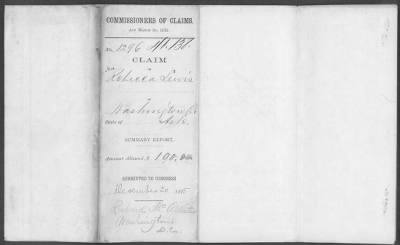 COMMISSIONERS OF CLAIMS.
Act March 3d, 1871.
No. 1296
CLAIM
of
Rebecca Lewis
of
Washington Co
State of Ark.
SUMMARY REPORT.
Amount Allowed, $ 190.00
SUBMITTED TO CONGRESS
December 20
Washington
D.C.